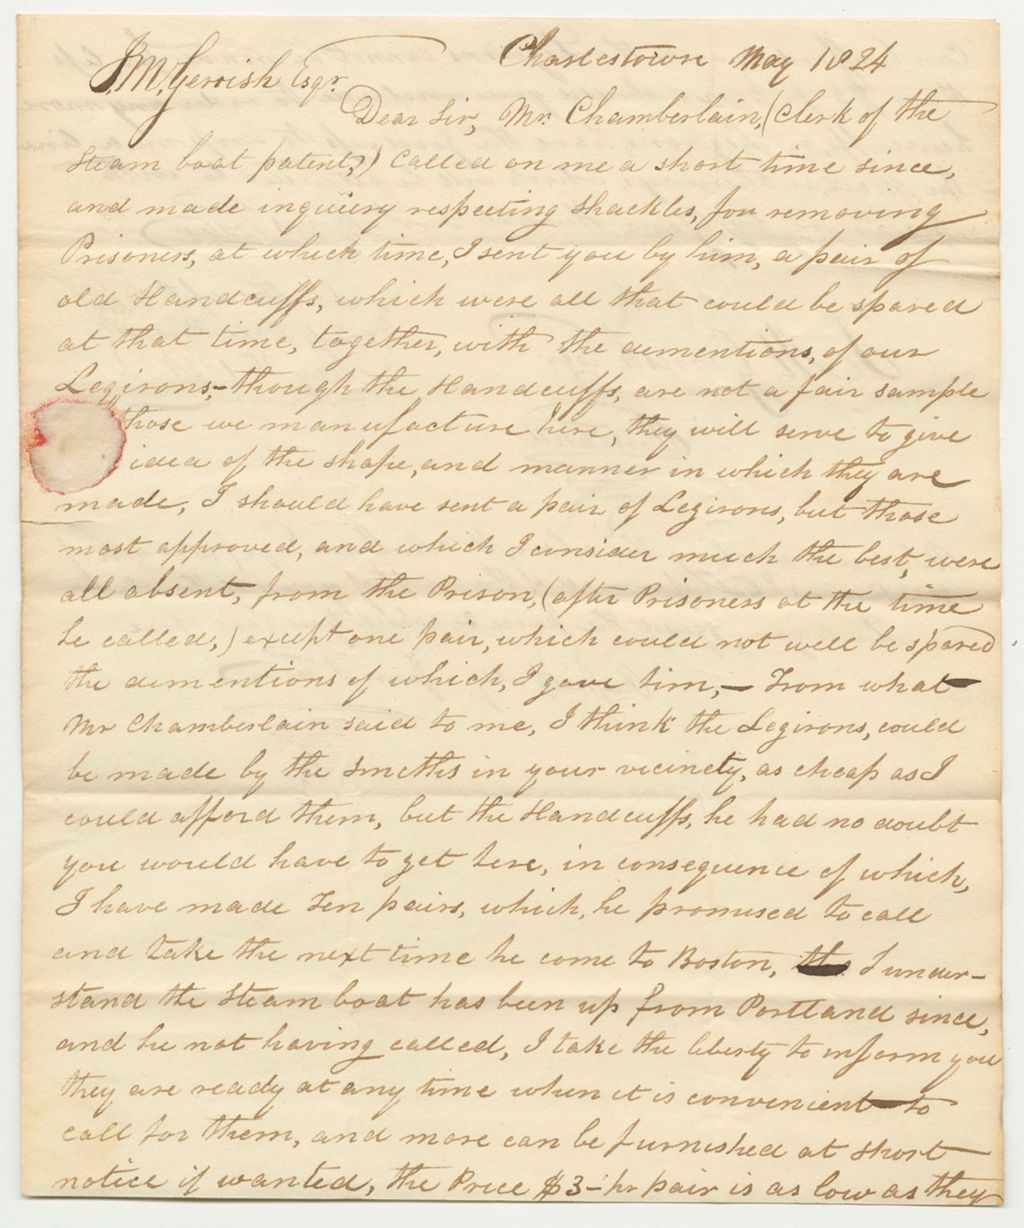 Charlestown May 1824
J.M. Gerrish Esqr.
Dear Sir, Mr. Chamberlain, (Clerk of the
Steam boat patent,) Called on me a short time since,
and made inquiery respecting Shackles, for removing
Prisoners, at which time, I sent you by him, a pair of
old Handcuffs, which were all that could be spared
at that time, together, with the dementions, of our
Legirons,- though the Handcuffs, are not a fair sample
those we manufacture here, they will serve to give
idea of the shape, and manner in which they are
made, I should have sent a pair of Legirons, but those
most approved, and which I consider much the best, were
all absent, from the Prison, (after Prisoners at the time
he called,) except one pair, which could not well be spared
the dementions of which, I gave him, — From what
Mr Chamberlain said to me, I think the Legirons, could
be made by the Smeths in your vicinety, as cheap as I
could afford them, but the Handcuffs, he had no doubt
you would have to get here, in consequence of which,
I have made Ten pairs, which, he promised to call
and take the next time he come to Boston, I under-
stand the Steam boat has been up from Portland since,
and he not having called, I take the liberty to inform you
they are ready at any time when it is convenient to
call for them, and more can be furnished at short
notice if wanted, the Price $3- pr pair is as low as they